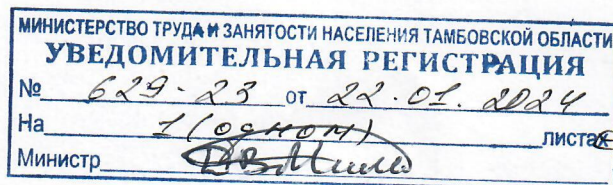 МИНИСТЕРСТВО ТРУДА И ЗАНЯТОСТИ НАСЕЛЕНИЯ ТАМБОВСКОЙ ОБЛАСТИ
УВЕДОМИТЕЛЬНАЯ РЕГИСТРАЦИЯ
№ 629-23 от 22.01.2024
На 1 (одном) листах
Министр